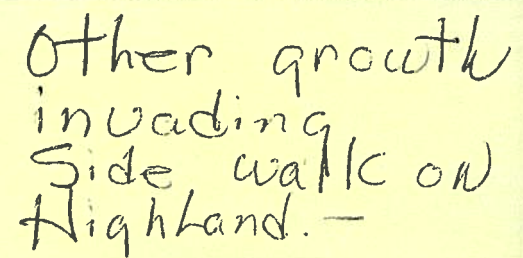 Other growth
invading
Side walk on
Highland. -